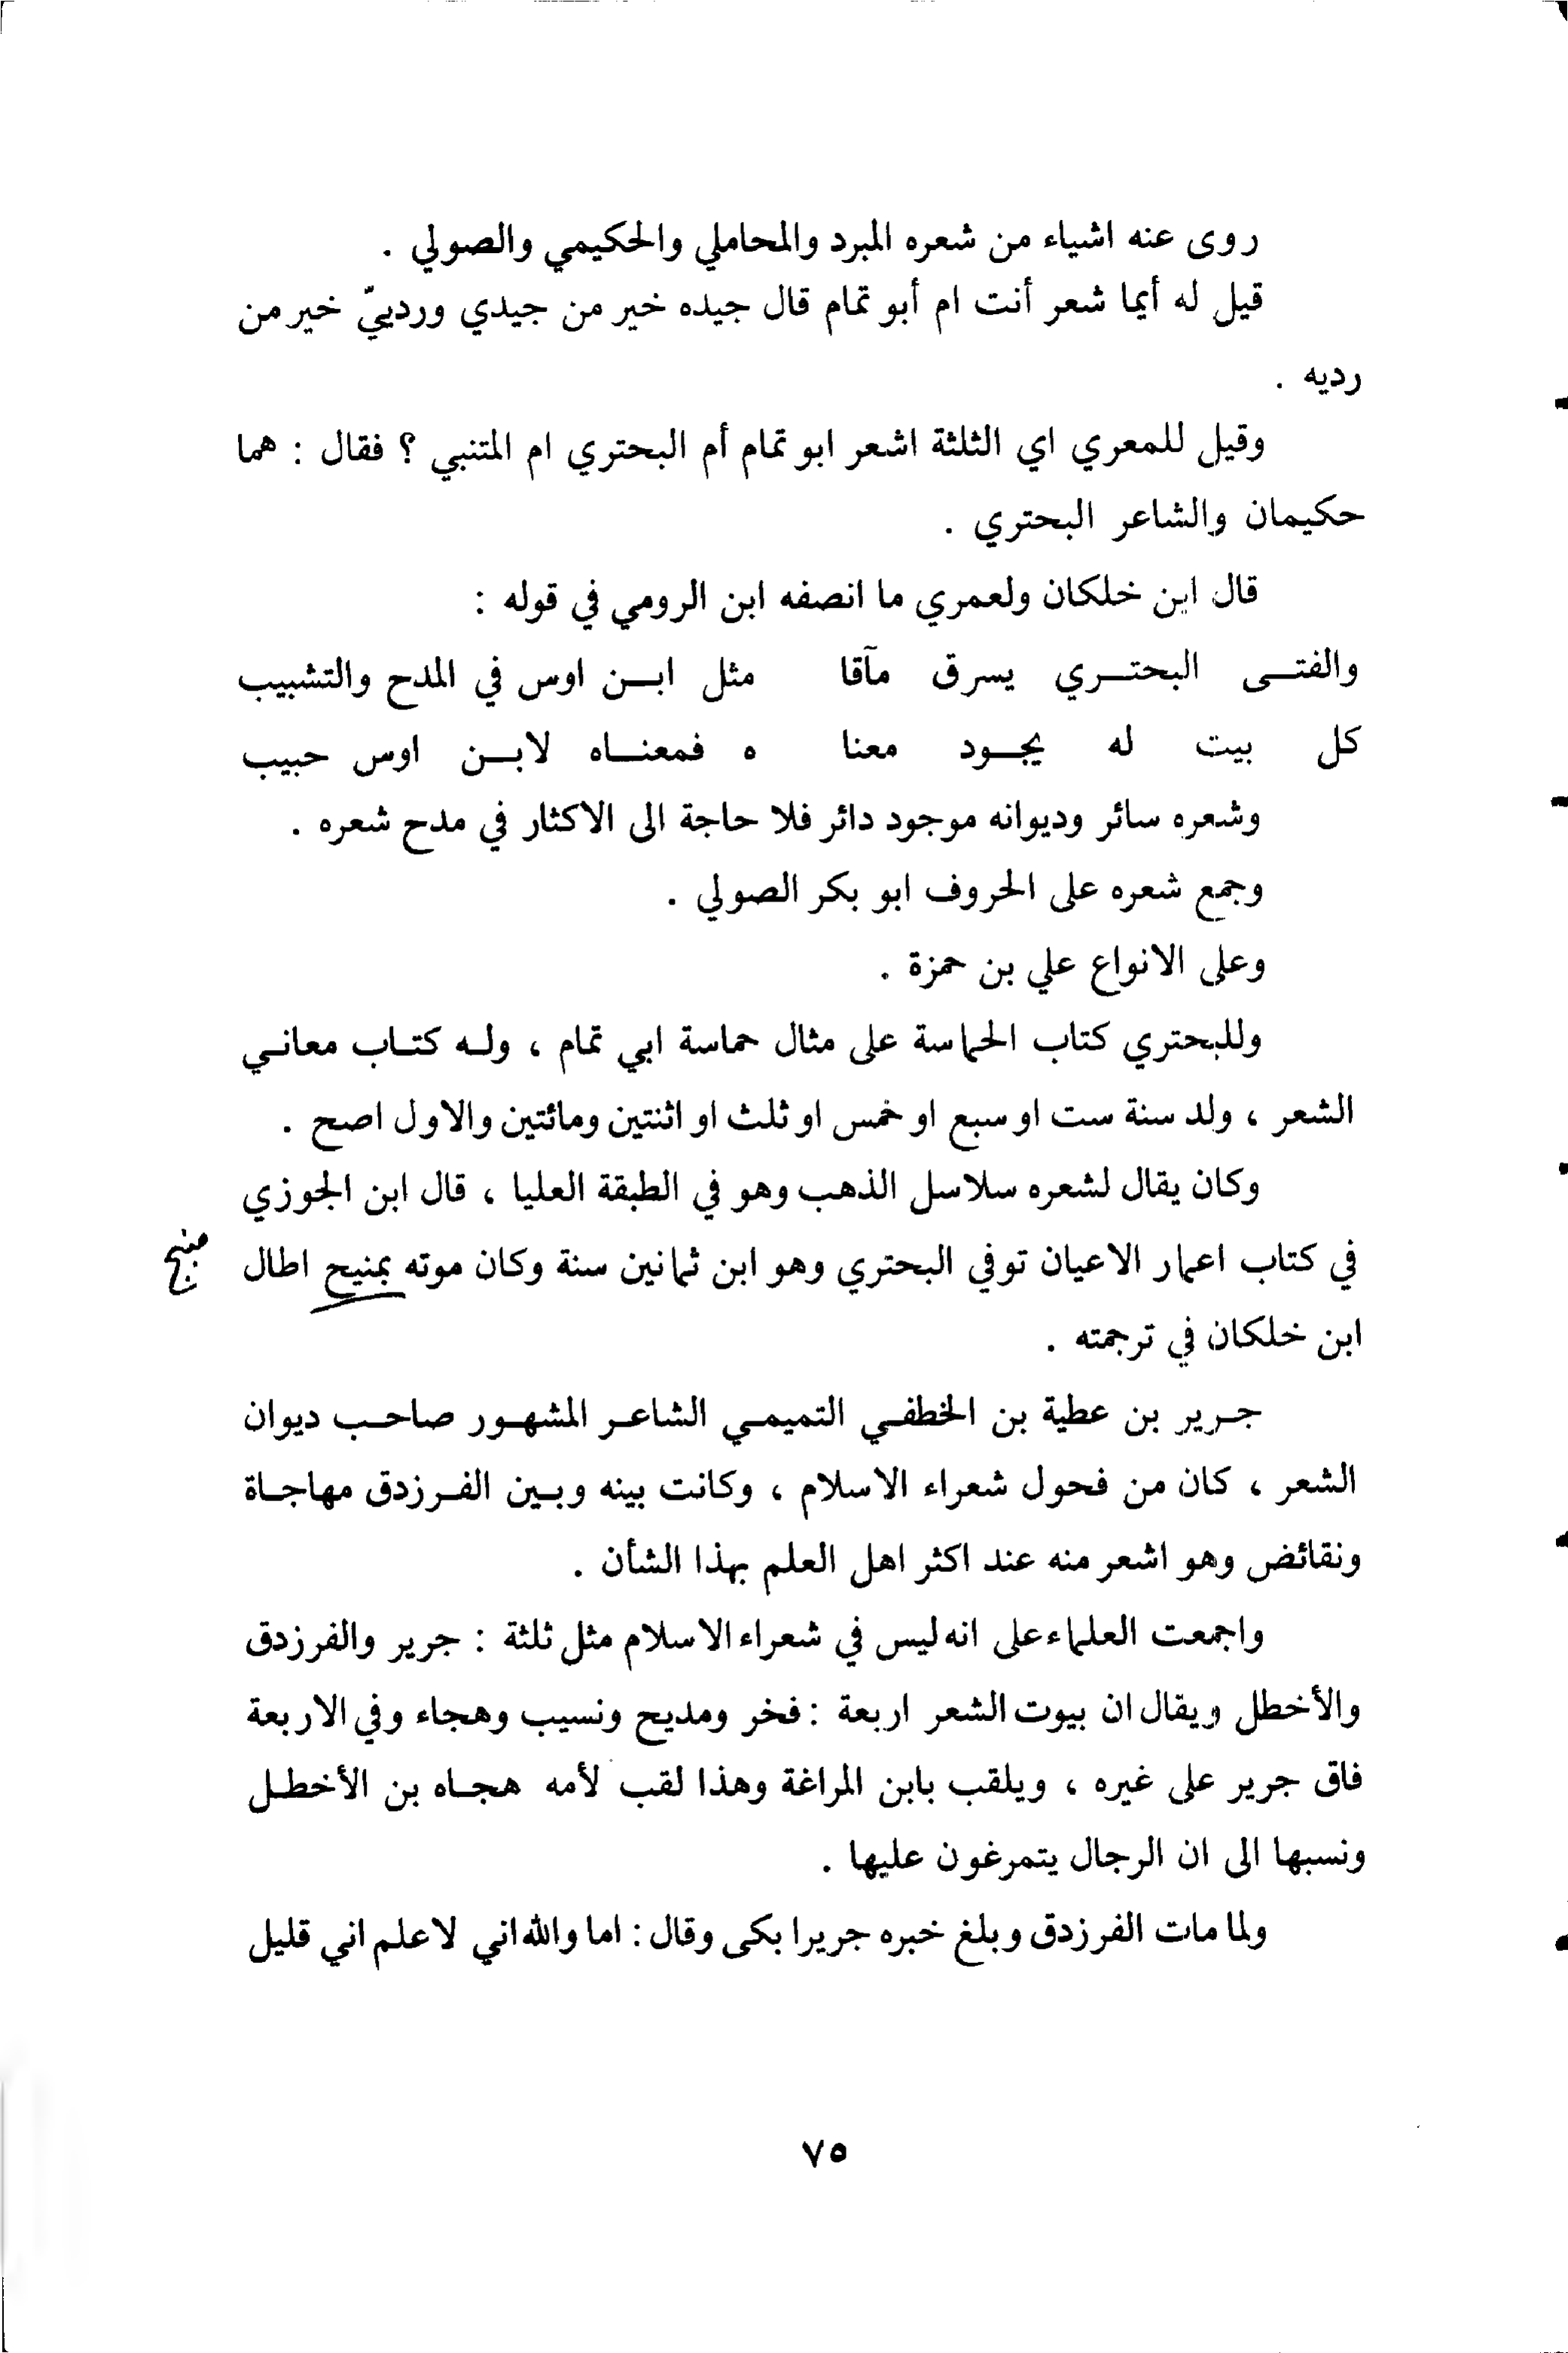 روى عنه اشياء من شعره المبرد والمحاملي والحكيمي والصولي .
قيل له أيما شعر أنت ام أبو تمام قال جيده خير من جيدي وردييّ خير من
رديه .
وقيل للمعري اي الثلثة اشعر ابو تمام أم البحتري ام المتنبي ؟ فقال : هما
حكيمان والشاعر البحتري .
قال ابن خلكان ولعمري ما انصفه ابن الرومي في قوله :
والفتـى البحتـري يسرق مآقا مثل ابـن اوس في المدح والتشبيب
كل بيت له يجـود معنا ه فمعنـاه لابـن اوس حبيب
وشعره سائر وديوانه موجود دائر فلا حاجة الى الاكثار في مدح شعره .
وجمع شعره على الحروف ابو بكر الصولي .
وعلى الانواع علي بن حمزة .
وللبحتري كتاب الحماسة على مثال حماسة ابي تمام ، ولـه كتـاب معانـي
الشعر ، ولد سنة ست او سبع او خمس او ثلث او اثنتين ومائتين والاول اصح .
وكان يقال لشعره سلاسل الذهب وهو في الطبقة العليا ، قال ابن الجوزي
في كتاب اعمار الاعيان توفي البحتري وهو ابن ثمانين سنة وكان موته بمنيح اطال
منبج
ابن خلكان في ترجمته .
جـرير بن عطية بن الخطفـي التميمـي الشاعـر المشهـور صاحـب ديوان
الشعر ، كان من فحول شعراء الاسلام ، وكانت بينه وبـين الفـرزدق مهاجـاة
ونقائض وهو اشعر منه عند اكثر اهل العلم بهذا الشأن .
واجمعت العلماء على انه ليس في شعراء الاسلام مثل ثلثة : جرير والفرزدق
والأخطل ويقال ان بيوت الشعر اربعة : فخر ومديح ونسيب وهجاء وفي الاربعة
فاق جرير على غيره ، ويلقب بابن المراغة وهذا لقب لأمه هجـاه بن الأخطـل
ونسبها الى ان الرجال يتمرغون عليها .
ولما مات الفرزدق وبلغ خبره جريرا بكى وقال : اما والله اني لاعلم اني قليل
٧٥